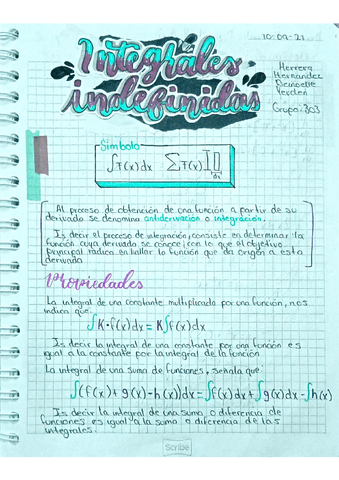 10-09-21
Integrales
indefinidas
Herrera
Hernandez
Grupo: 303
Símbolo
∫F(x)dx ΣF(x)
Al proceso de obtención de una función a partir de su
derivada se denomina antiderivación o integración.
Es decir el proceso de integración, consiste en determinar la
función cuya derivada se conoce; con lo que el objetivo
principal radica en hallar la función que da origen a esta
derivada
Propiedades
La integral de una constante multiplicada por una función, nos
indica que:
∫K·f(x)dx = K∫f(x)dx
Es decir la integral de una constante por una función es
igual a la constante por la integral de la función
La integral de una suma de funciones, señala que:
∫(f(x)+g(x)-h(x))dx=∫f(x)dx+∫g(x)dx-∫h(x)
Es decir la integral de una suma o diferencia de
funciones es igual a la suma o diferencia de las
integrales.
Scribe